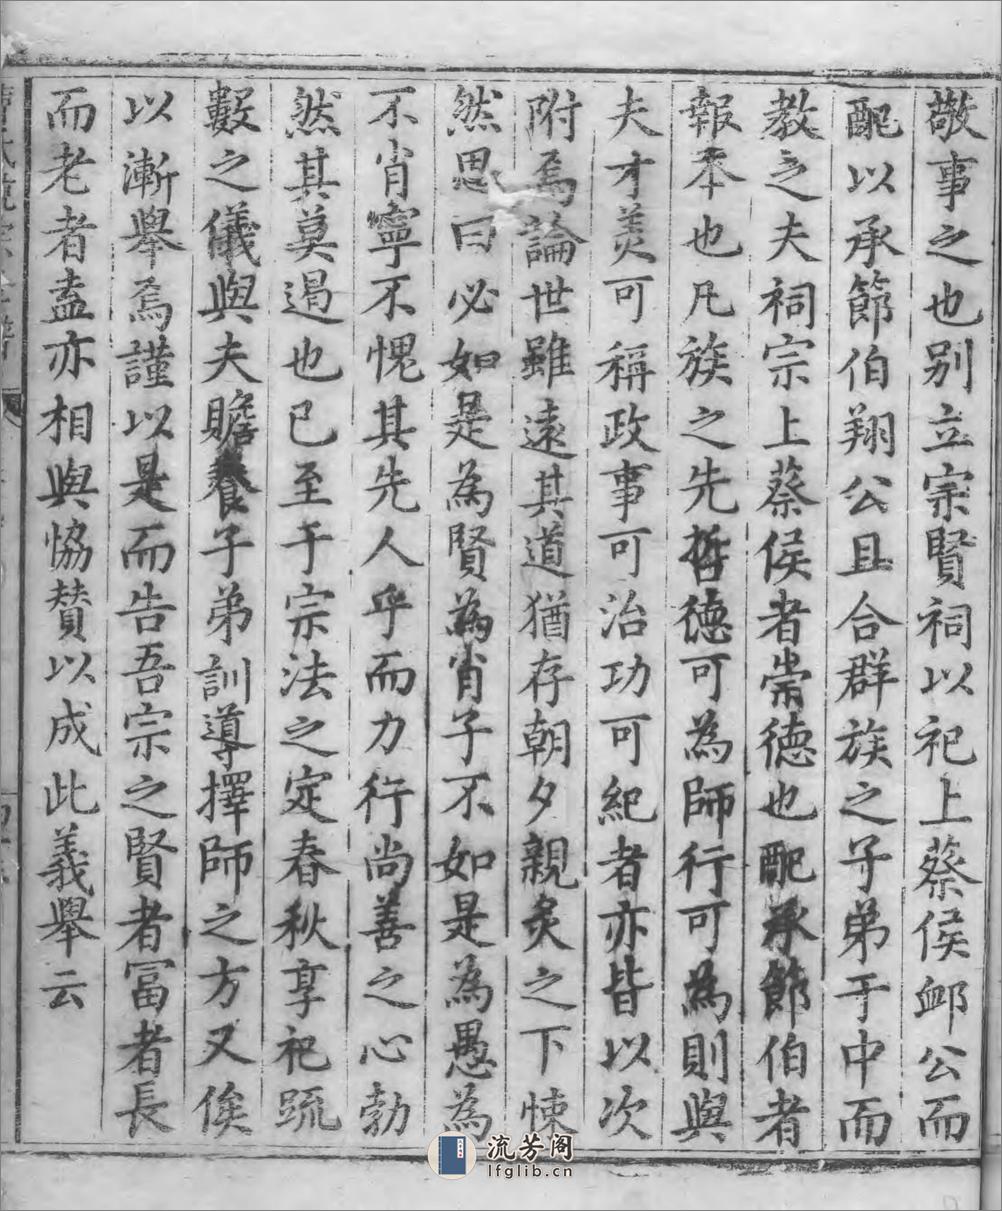 敬事之也别立宗賢祠以祀上蔡侯卹公而
配以承節伯翔公且合群族之子弟于中而
教之夫祠宗上蔡侯者崇德也配承節伯者
報本也凡族之先哲德可為師行可為則與
夫才美可稱政事可治功可紀者亦皆以次
附焉論世雖遠其道猶存朝夕親炙之下悚
然思曰必如是為賢為肖子不如是為愚為
不肖寧不愧其先人乎而力行尚善之心勃
然其莫遏也已至于宗法之定春秋享祀疏
數之儀與夫贍養子弟訓導擇師之方又俟
以漸舉焉謹以是而告吾宗之賢者冨者長
而老者盍亦相與恊賛以成此義舉云
流芳阁
lfglib.cn